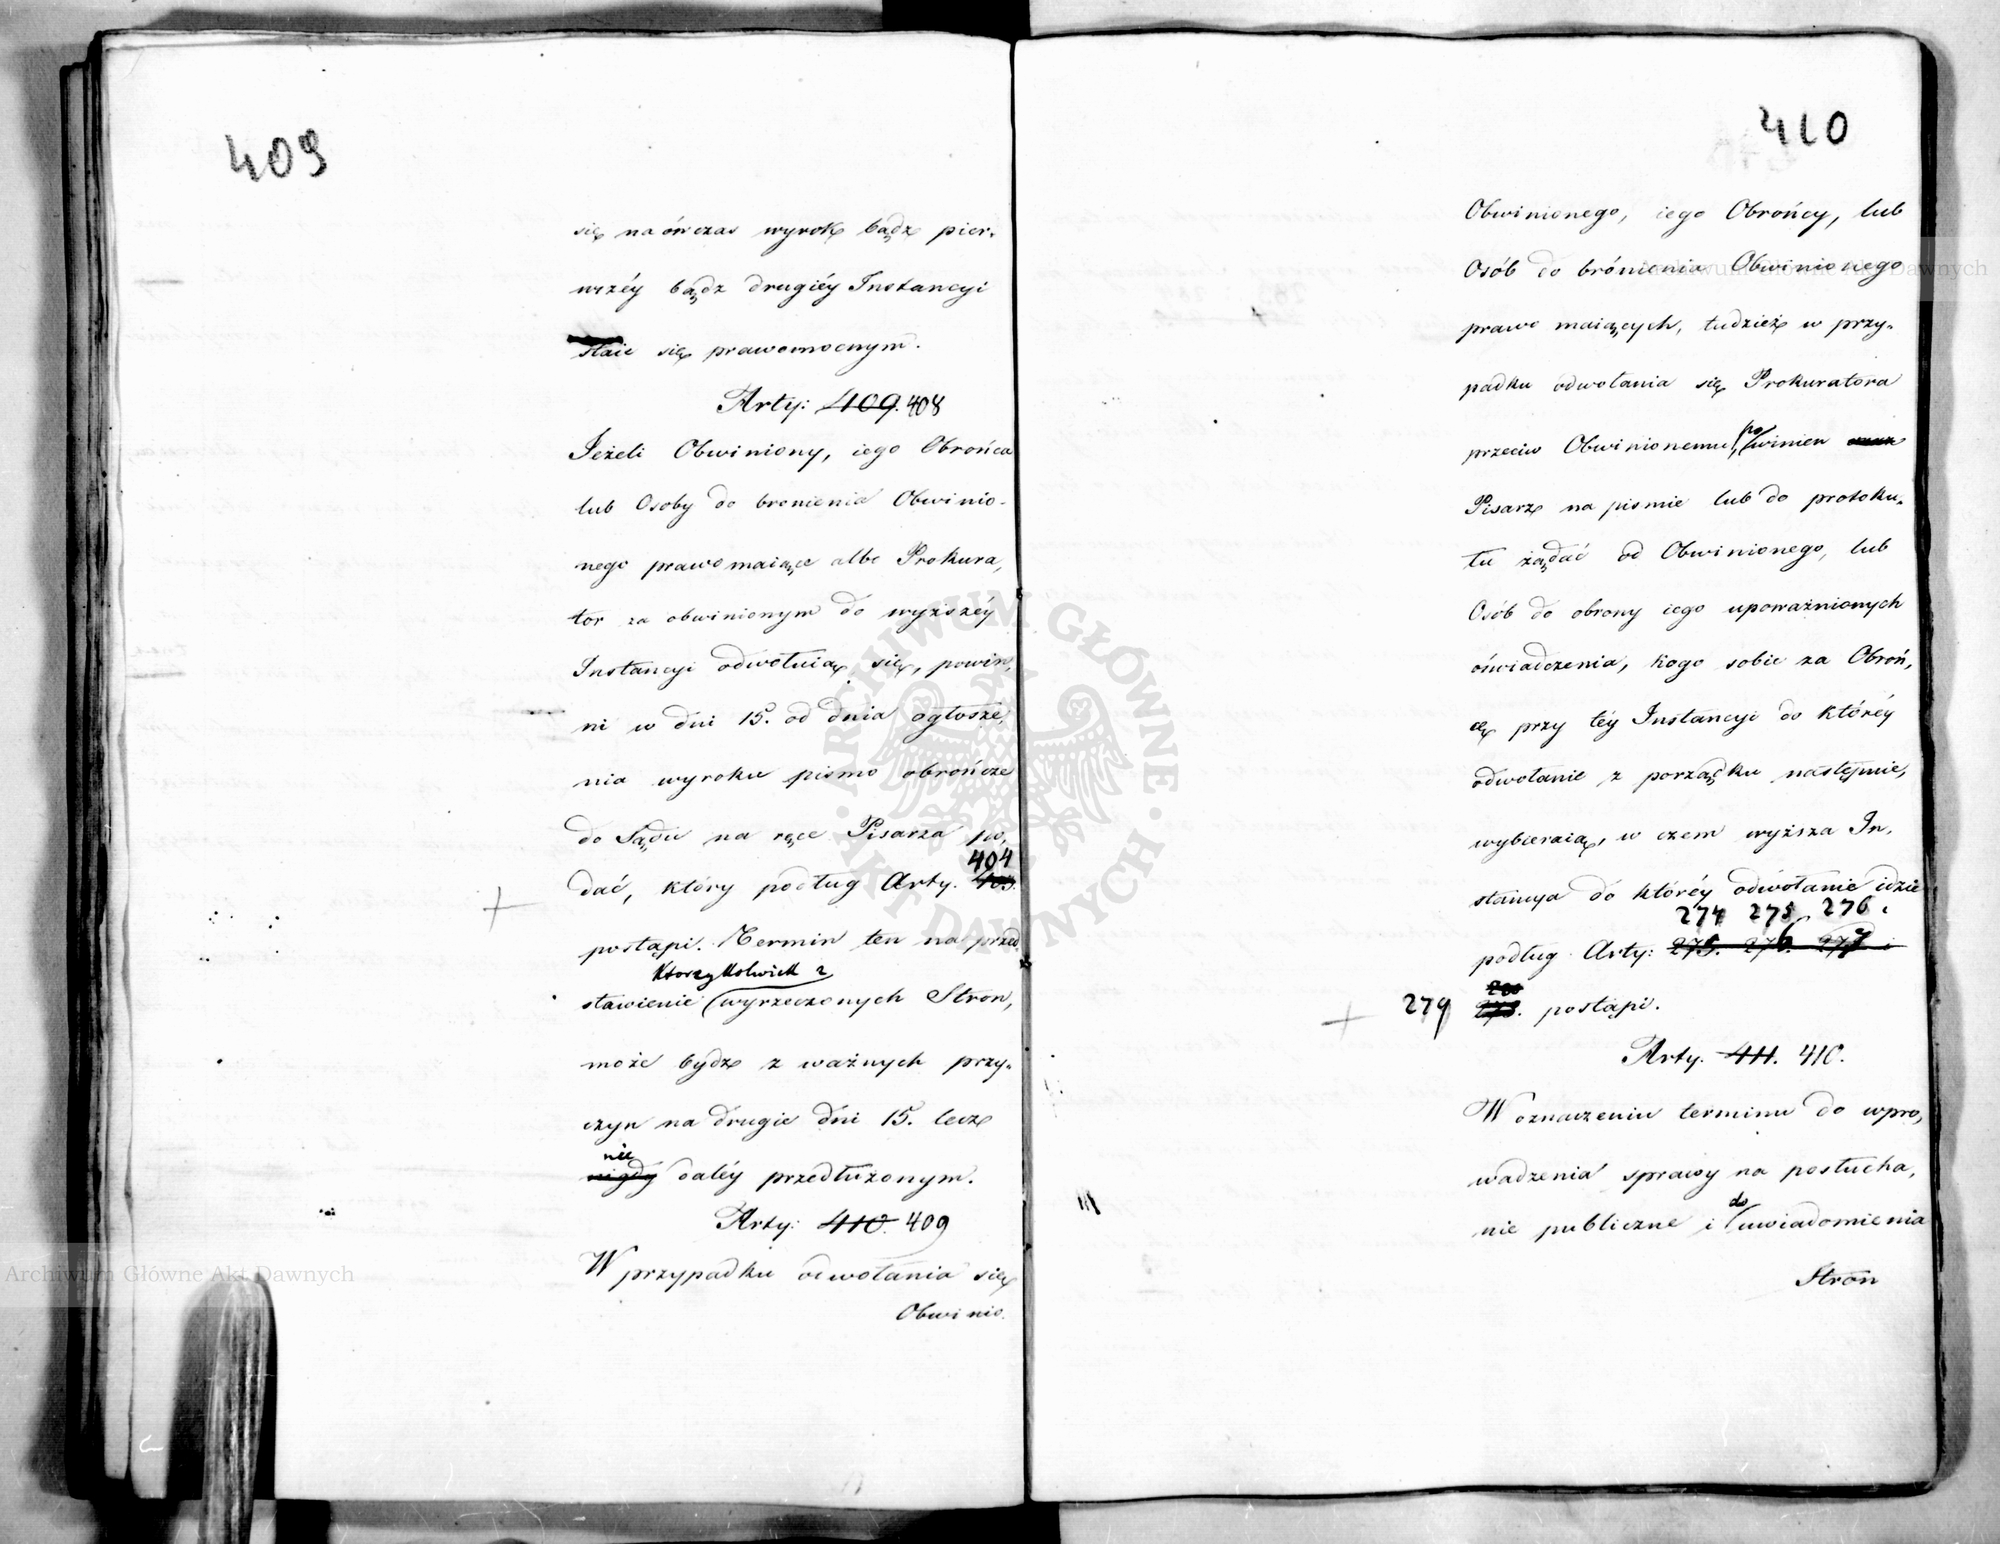 409
się naówczas wyrok bądź pier-
wszéy bądz drugiéy Instancyi
staie się prawomocnym.
Arty: 409. 408
Jeżeli Obwiniony, iego Obrońca
lub Osoby do bronienia Obwinio-
nego prawo maiące albo Prokura,
tor za obwinionym do wyższéy
Instancyi odwołuią się, powin,
ni w dni 15. od dnia ogłosze,
nia wyroku pismo obrończe
do Sądu na ręce Pisarza po,
404
dać, który podług Arty. 405.
postąpi. Termin ten na przed
ktorzykolwiek z
stawienie wyrzeczonych Stron,
może bydź z ważnych przy-
czyn na drugie dni 15. lecz
nie
nigdy daléy przedłużonym.
Arty: 410. 409
W przypadku odwołania się
Obwinio.
410
Obwinionego, iego Obrońcy, lub
Osób do bronienia Obwinionego
prawo maiących, tudzież w przy-
padku odwołania się Prokuratora
po
przeciw Obwinionemu, winien
Pisarz na pismie lub do protoku-
łu żądać od Obwinionego, lub
Osób do obrony iego upoważnionych
oświadczenia, kogo sobie za Obroń,
cę przy téy Instancyi do któréy
odwołanie z porządku następuie,
wybieraią, w czem wyższa In,
stancya do któréy odwołanie idzie
274 275. 276. i
podług Arty: 275. 276. 277 i
280
279 278. postąpi.
Arty. 411. 410.
W oznaczeniu terminu do wpro,
wadzenia sprawy na posłucha,
do
nie publiczne i uwiadomienia
Stron
Archiwum Główne Akt Dawnych
Archiwum Główne Akt Dawnych
ARCHIWUM GŁÓWNE · AKT DAWNYCH ·